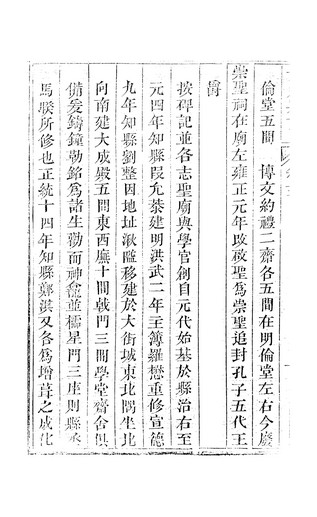 倫堂五間　博文約禮二齋各五間在明倫堂左右今廢
崇聖祠在廟左雍正元年改啟聖爲崇聖追封孔子五代王
爵
按碑記並各志聖廟與學官創自元代始基於縣治右至
元四年知縣段允恭建明洪武二年主簿羅懋重修宣德
九年知縣劉整因地址湫隘移建於大街城東北隅坐北
向南建大成殿五間東西廡十間戟門三間學堂齋舍俱
備爰鑄鐘勒銘爲諸生勸而神龕並櫺星門三座則縣丞
馬聯所修也正統十四年知縣鄭淇又各爲增葺之成化